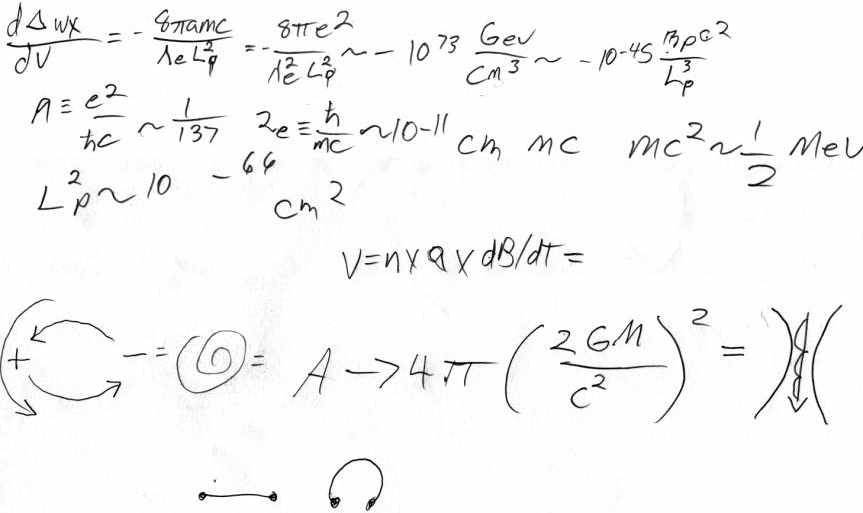 dΔwx/dV = - 8πamc/λeL²p = - 8πe²/λ²eL²p ~ - 10 73 Gev/cm³ ~ - 10-45 mpc²/L³p
A ≡ e²/ħc ~ 1/137 2e ≡ ħ/mc ~ 10-11 cm mc mc² ~ 1/2 MeV
L²p ~ 10 -66 cm²
V=nxqxdB/dT=
+ - = = A → 4π (2GM/c²)² =